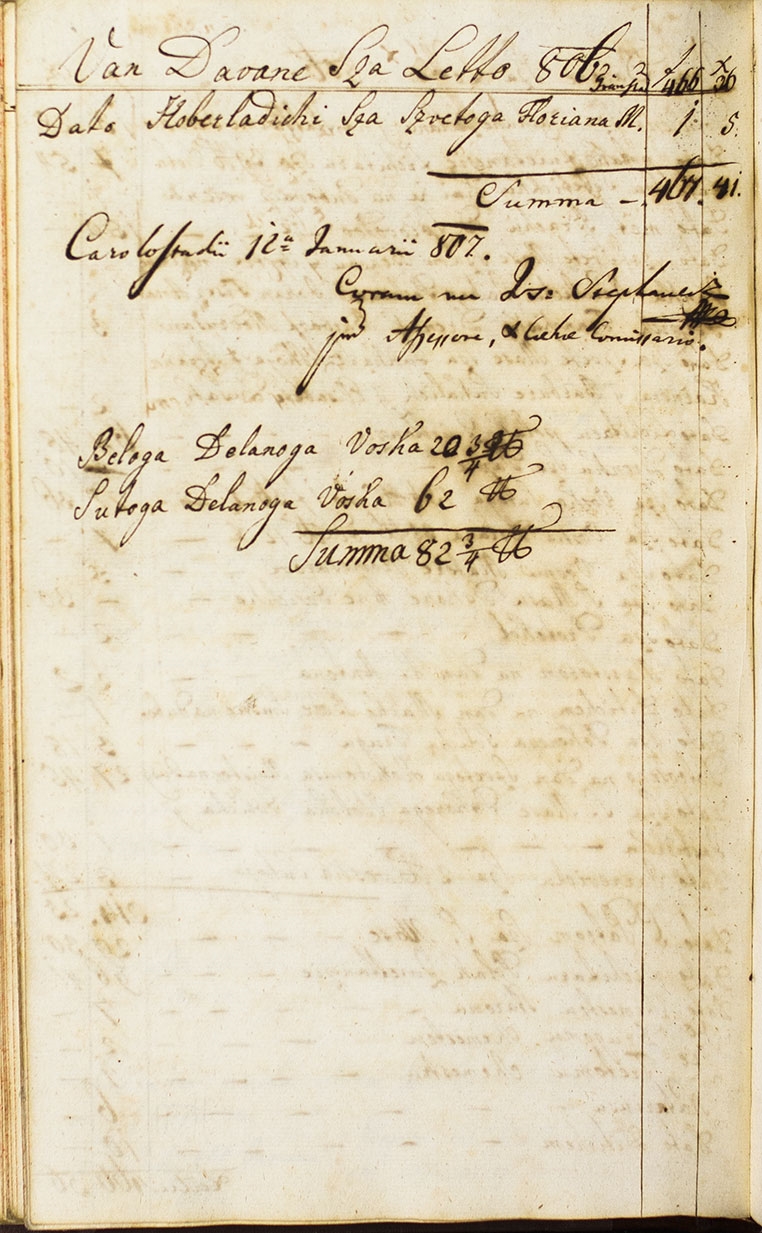 Van Davane Sza Letto 806 Transp. f 466 x 36
Dato Hoberladichi Sza Szvetoga Floriana M. 1 5.
Summa – 467. 41.
Carolostadii 12a Januarii 807.
Coram me Jos: Stephanecz
jur Assessore, & Cehae Comissario.
Beloga Delanoga Voska 20 3/4 ℔
Sutoga Delanoga Voska 62 ℔
Summa 82 3/4 ℔